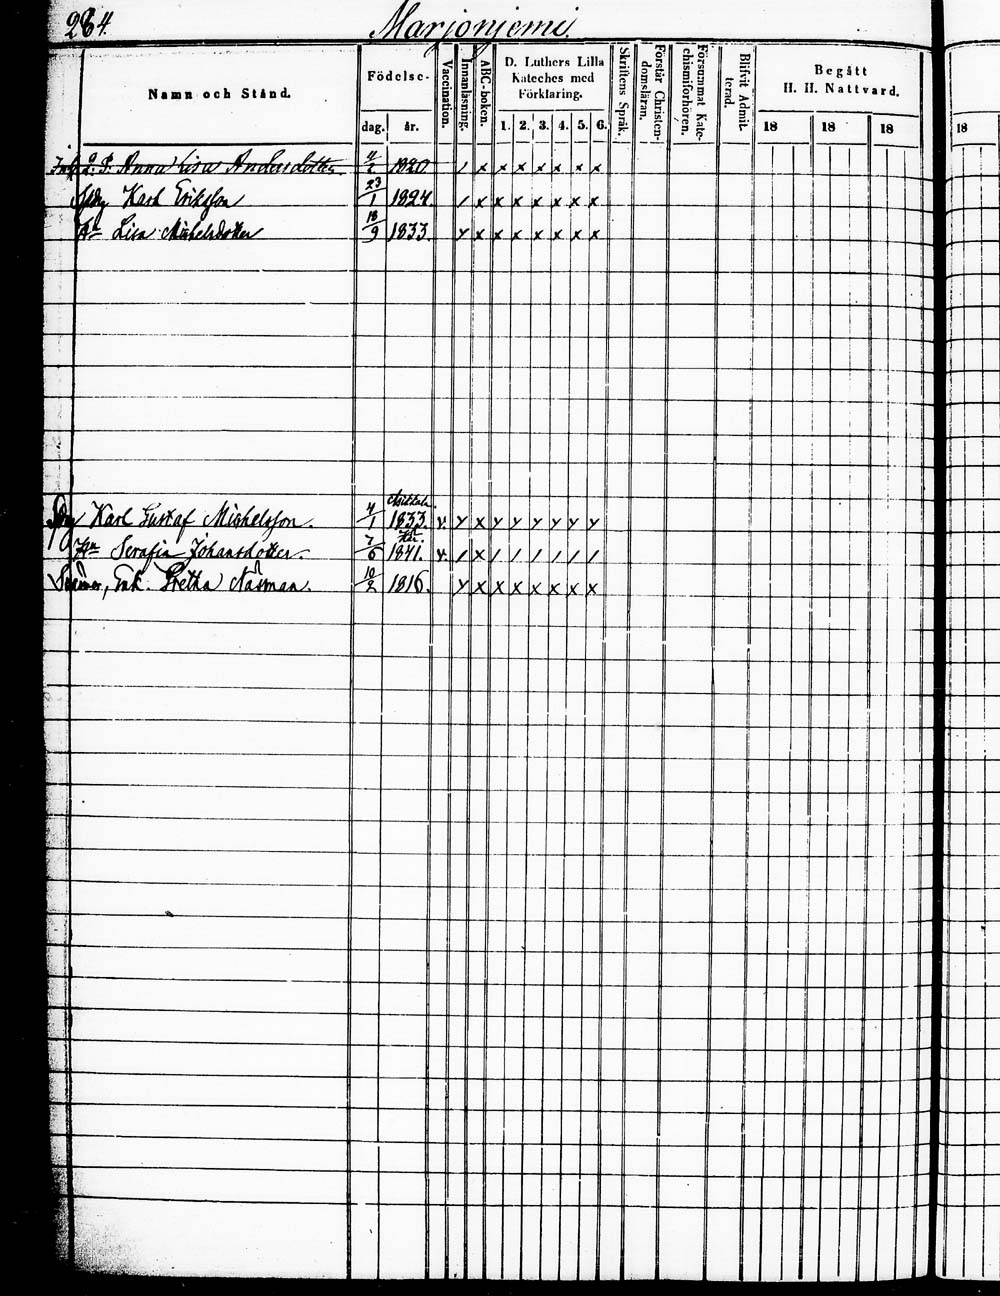 264.
Marjonjemi.
Namn och Stånd.
Födelse-
dag. år.
Vaccination.
Innanläsning.
ABC-boken.
D. Luthers Lilla
Kateches med
Förklaring.
1. 2. 3. 4. 5. 6.
Skriftens Språk.
Förstår Christen-
domsläran.
Försummat Kate-
chismiförhören.
Blifvit Admit-
terad.
Begått
H. H. Nattvard.
18 18 18 18
Anna Lisa Andersdotter 4/2 1820 / x x x x x x x
Karl Eriksson 23/1 1824. / x x x x x x x
Hu Lisa Michelsdotter 18/9 1833. y x x x x x x x
Karl Gustaf Michelsson. 4/1 1833. v. y x y y y y y y
Hu Serafia Johansdotter. 7/6 1841. v. / x / / / / / /
Enk. Gretha Näsman. 10/2 1816. y x x x x x x x